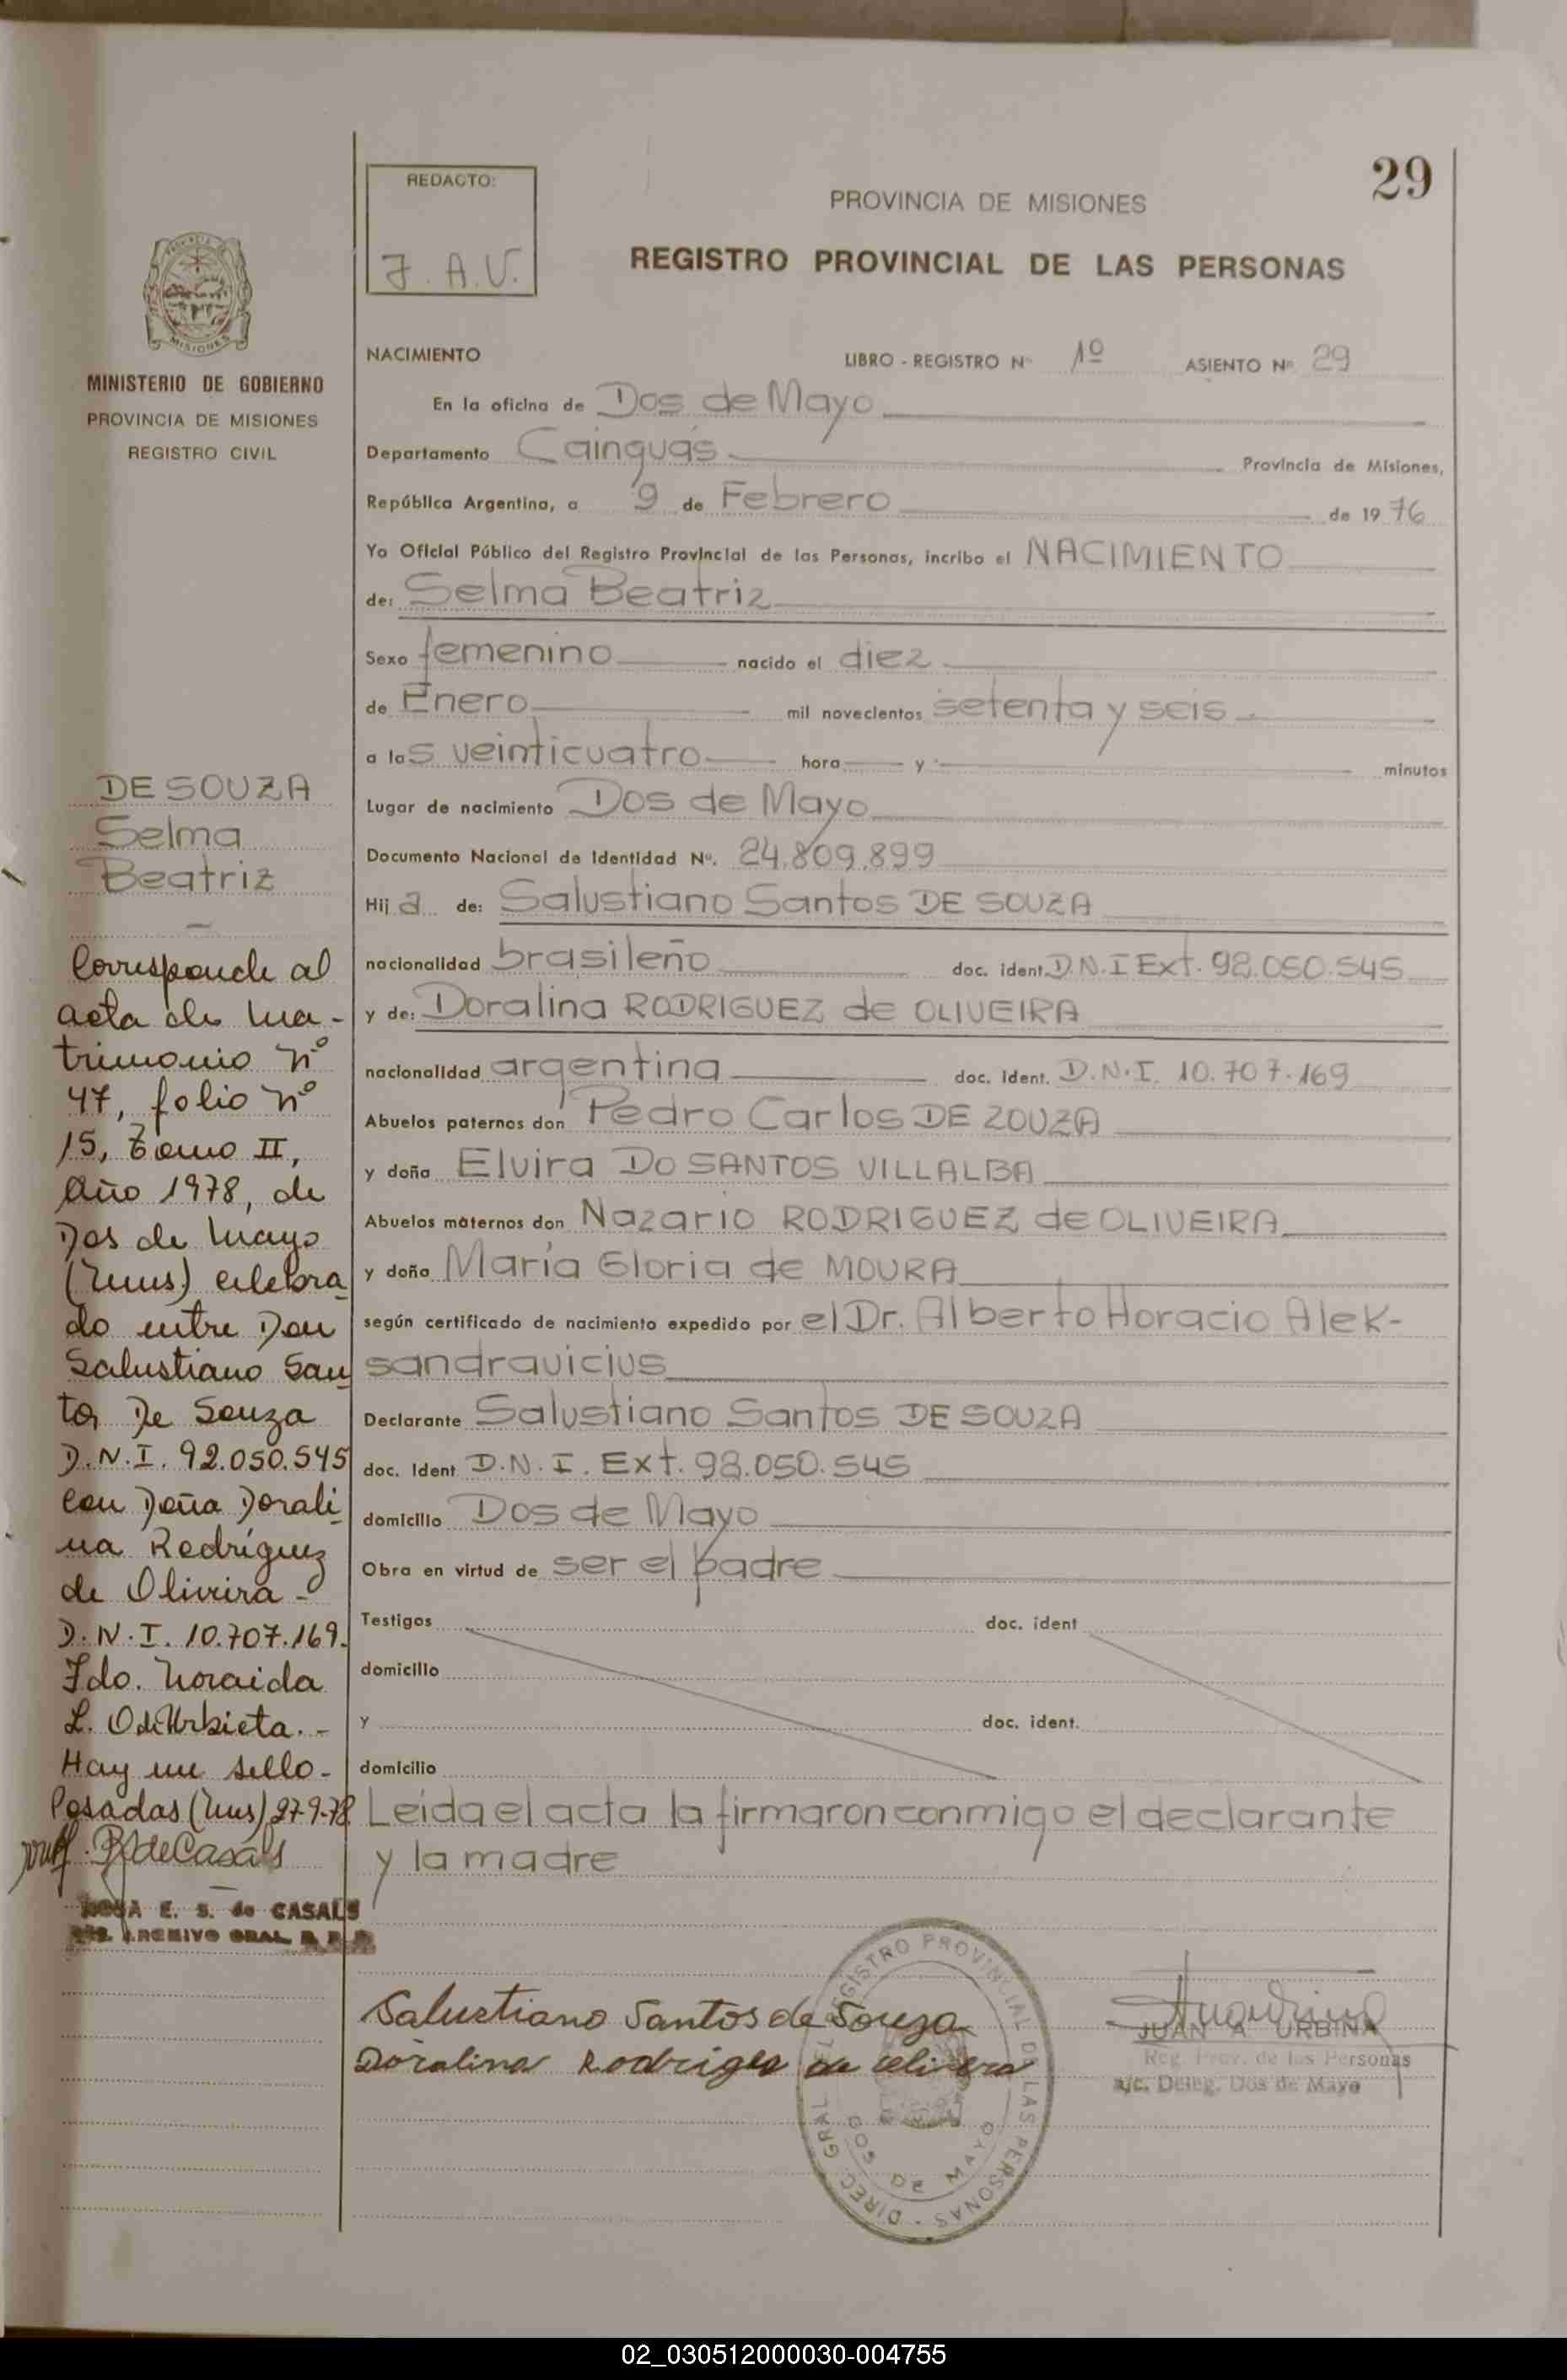 29
REDACTO:
J. A. V.
PROVINCIA DE MISIONES
REGISTRO PROVINCIAL DE LAS PERSONAS
MISIONES
MINISTERIO DE GOBIERNO
PROVINCIA DE MISIONES
REGISTRO CIVIL
NACIMIENTO LIBRO - REGISTRO Nº 1º ASIENTO Nº 29
En la oficina de Dos de Mayo
Departamento Cainguás Provincia de Misiones,
República Argentina, a 9 de Febrero de 1976
Yo Oficial Público del Registro Provincial de las Personas, incribo el NACIMIENTO
de: Selma Beatriz
Sexo femenino nacido el diez
de Enero mil novecientos setenta y seis
a las veinticuatro hora y minutos
Lugar de nacimiento Dos de Mayo
Documento Nacional de Identidad Nº. 24.809.899
Hija de: Salustiano Santos DE SOUZA
nacionalidad brasileño doc. ident. D.N.I Ext. 92.050.545
y de: Doralina RODRIGUEZ de OLIVEIRA
nacionalidad argentina doc. ident. D.N.I. 10.707.169
Abuelos paternos don Pedro Carlos DE ZOUZA
y doña Elvira DO SANTOS VILLALBA
Abuelos maternos don Nazario RODRIGUEZ de OLIVEIRA
y doña María Gloria de MOURA
según certificado de nacimiento expedido por el Dr. Alberto Horacio Alek-
sandravicius
Declarante Salustiano Santos DE SOUZA
doc. Ident D.N.I. Ext. 92.050.545
domicilio Dos de Mayo
Obra en virtud de ser el padre
Testigos doc. ident
domicilio
y doc. ident.
domicilio
Leida el acta la firmaron conmigo el declarante
y la madre
DE SOUZA
Selma
Beatriz
Corresponde al
acta de ma-
trimonio nº
47, folio nº
15, Tomo II,
Año 1978, de
Dos de Mayo
(Mnes) celebra
do entre Don
Salustiano San
tos De Souza
D.N.I. 92.050.545
con Doña Dorali
na Rodríguez
de Oliveira -
D.N.I. 10.707.169.
Fdo. Noraida
L. O de Urbieta. -
Hay un sello -
Posadas (Mnes) 27-9-78
R de Casals
ROSA E. S. de CASALS
ARCHIVO GRAL.
Salustiano Santos de Souza
Doralina Rodrigez de Olivera
DIREC. GRAL. DEL REGISTRO PROVINCIAL DE LAS PERSONAS
DOS DE MAYO
JUAN A URBINA
Reg. Prov. de las Personas
a/c. Deleg. Dos de Mayo
02_030512000030-004755